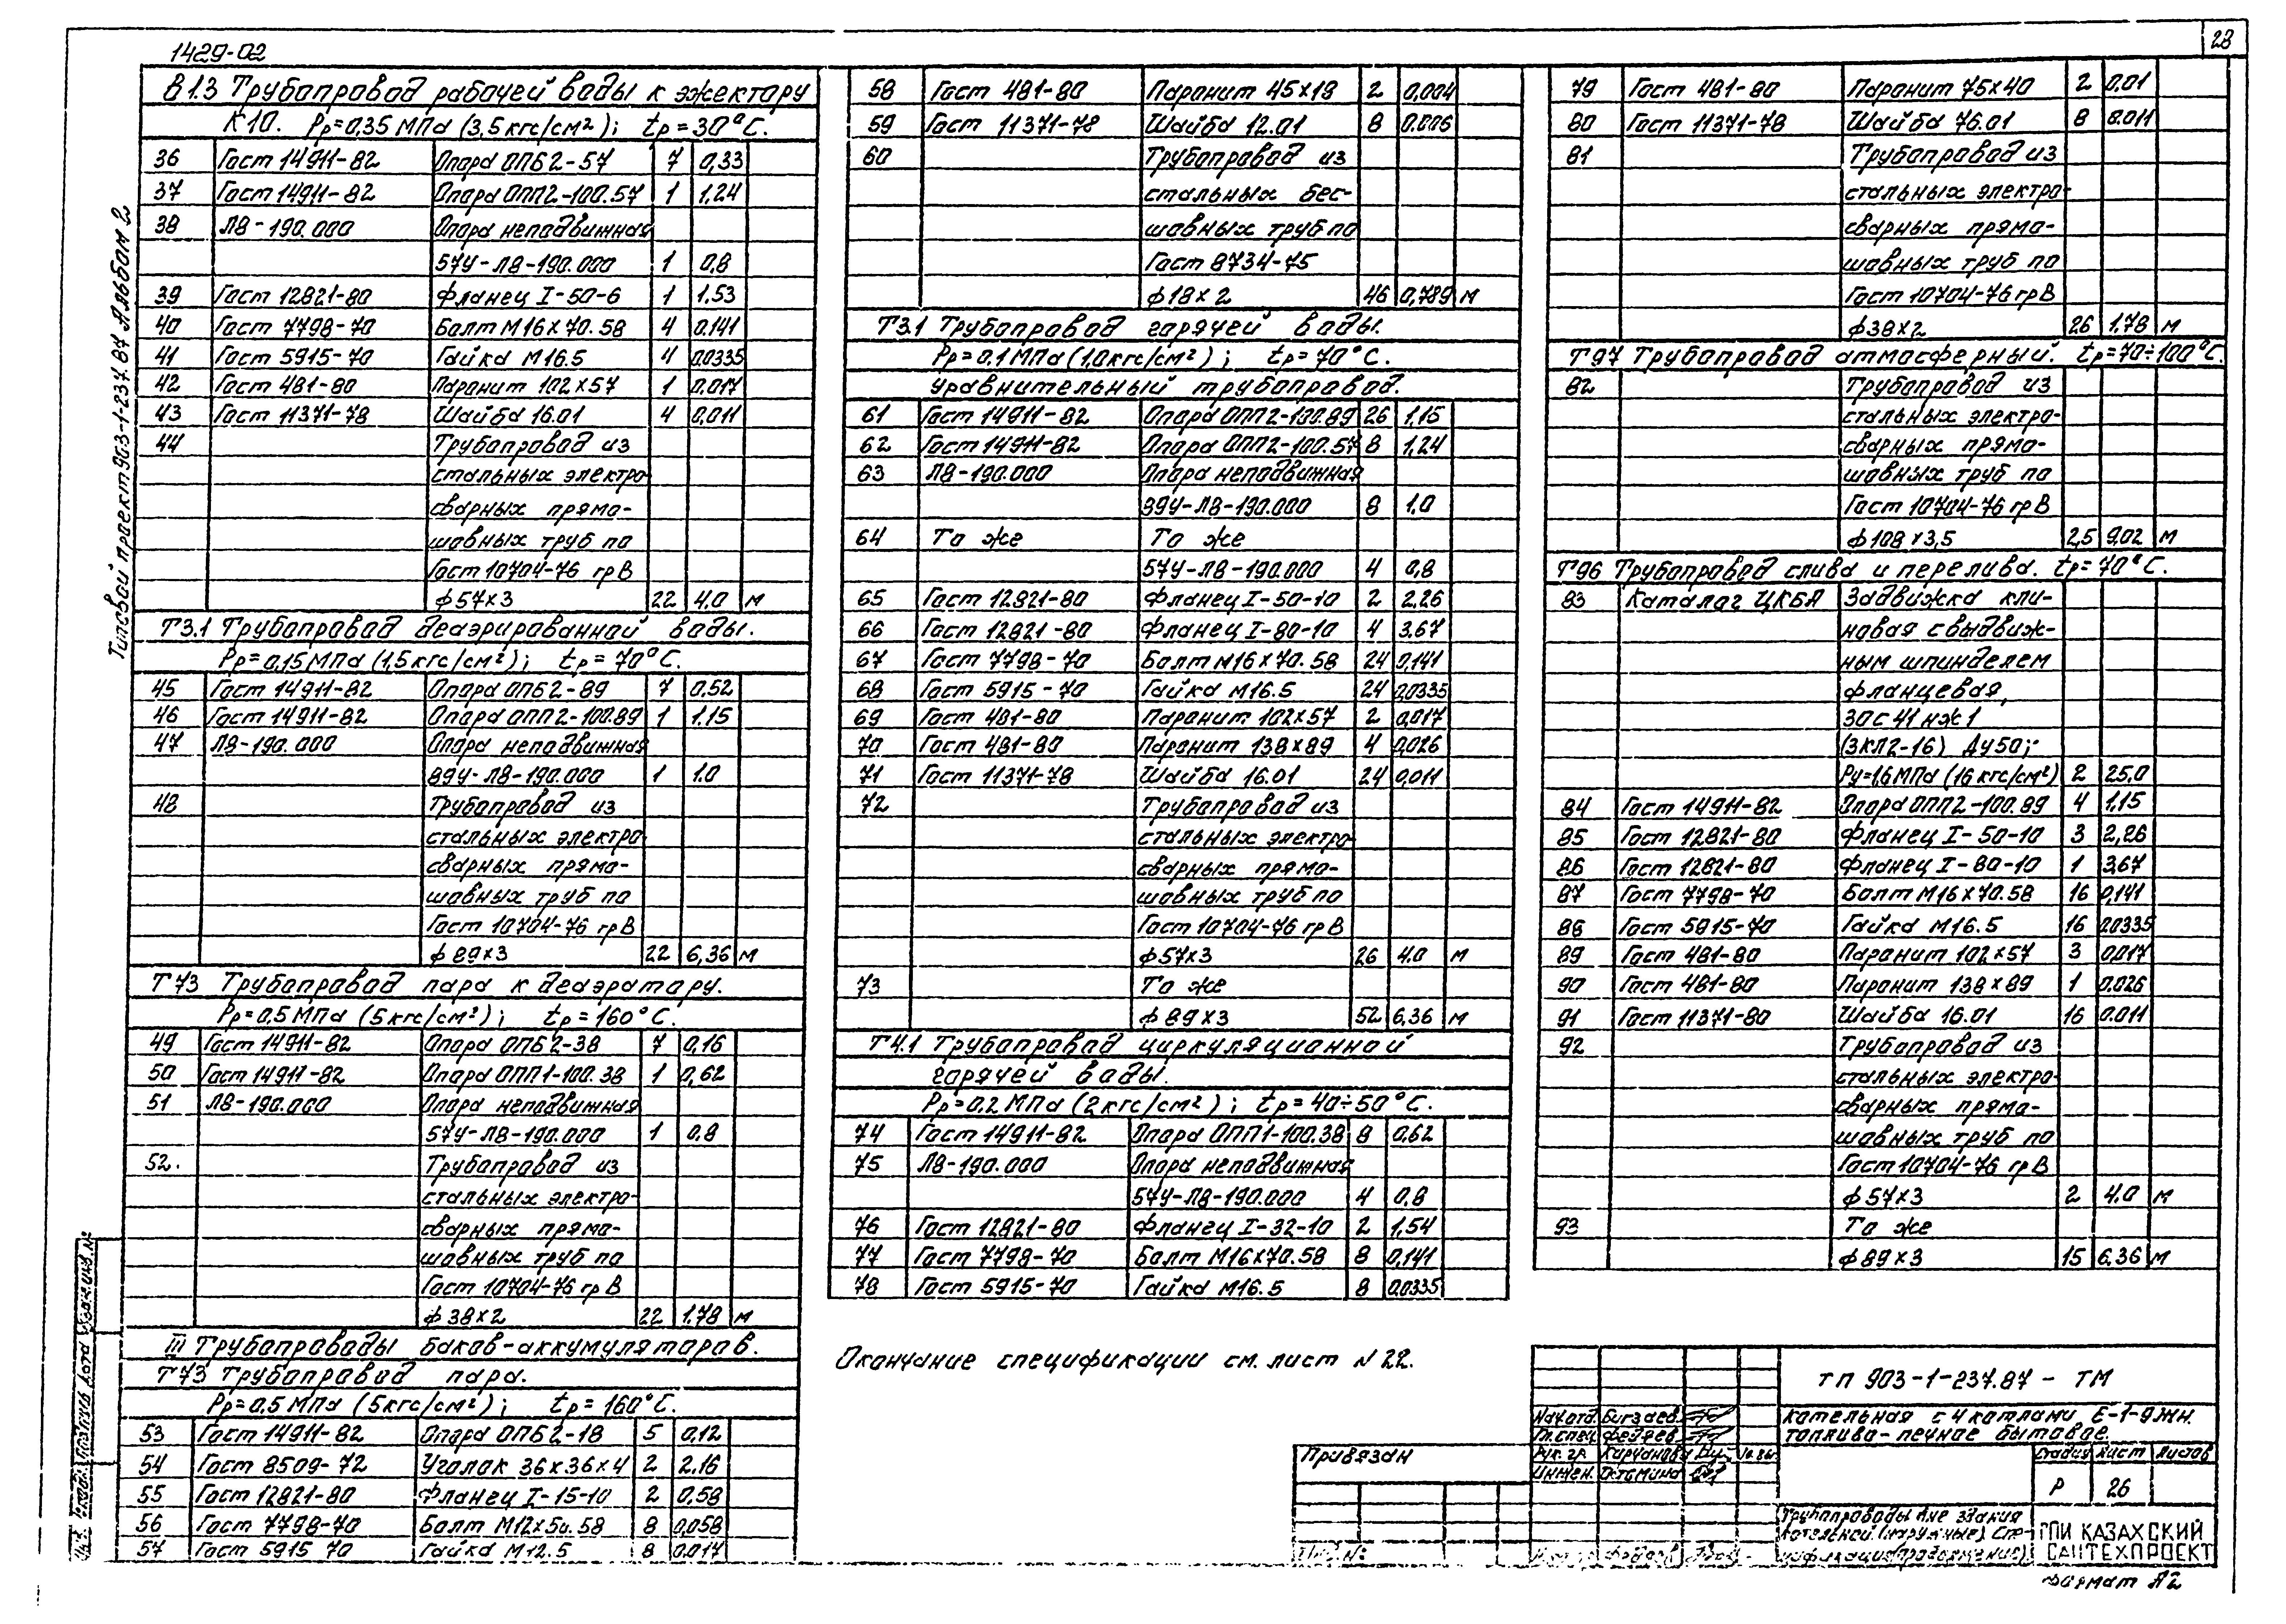 28
1429-02
Типовой проект 903-1-237.87 Альбом 2
В1.3 Трубопровод рабочей воды к эжектору
К10. Рр=0,35 МПа (3,5 кгс/см²); tр=30°С.
36 Гост 14911-82 Опора ОПБ2-57 7 0,33
37 Гост 14911-82 Опора ОПП2-100.57 1 1,24
38 Л8-190.000 Опора неподвижная
57У-Л8-190.000 1 0,8
39 Гост 12821-80 Фланец I-50-6 1 1,53
40 Гост 7798-70 Болт М16х70.58 4 0.141
41 Гост 5915-70 Гайка М16.5 4 0.0335
42 Гост 481-80 Паронит 102х57 1 0.017
43 Гост 11371-78 Шайба 16.01 4 0,011
44 Трубопровод из
стальных электро-
сварных прямо-
шовных труб по
Гост 10704-76 гр В
ф57х3 22 4.0 м
Т3.1 Трубопровод деаэрированной воды.
Рр=0,15 МПа (1,5 кгс/см²); tр=70°С.
45 Гост 14911-82 Опора ОПБ2-89 7 0,52
46 Гост 14911-82 Опора ОПП2-100.89 1 1.15
47 Л8-190.000 Опора неподвижная
89У-Л8-190.000 1 1.0
48 Трубопровод из
стальных электро
сварных прямо-
шовных труб по
Гост 10704-76 гр В
ф89х3 22 6,36 м
Т73 Трубопровод пара к деаэратору.
Рр=0,5 МПа (5 кгс/см²); tр=160°С.
49 Гост 14911-82 Опора ОПБ2-38 7 0,16
50 Гост 14911-82 Опора ОПП1-100.38 1 0,62
51 Л8-190.000 Опора неподвижная
57У-Л8-190.000 1 0.8
52. Трубопровод из
стальных электро-
сварных прямо-
шовных труб по
Гост 10704-76 гр В
ф38х2 22 1.78 м
III Трубопроводы баков-аккумуляторов.
Т73 Трубопровод пара.
Рр=0.5 МПа (5 кгс/см²); tр=160°С.
53 Гост 14911-82 Опора ОПБ2-18 5 0,12
54 Гост 8509-72 Уголок 36х36х4 2 2.16
55 Гост 12821-80 Фланец I-15-10 2 0,58
56 Гост 7798-70 Болт М12х50.58 8 0,058
57 Гост 5915 70 Гайка М12.5 8 0.017
58 Гост 481-80 Паронит 45х18 2 0,004
59 Гост 11371-78 Шайба 12.01 8 0.006
60 Трубопровод из
стальных бес-
шовных труб по
Гост 8734-75
ф18х2 46 0,789 м
Т3.1 Трубопровод горячей воды.
Рр=0.1 МПа (1,0 кгс/см²); tр=70°С.
Уравнительный трубопровод.
61 Гост 14911-82 Опора ОПП2-100.89 26 1,15
62 Гост 14911-82 Опора ОПП2-100.57 8 1,24
63 Л8-190.000 Опора неподвижная
89У-Л8-190.000 8 1.0
64 То же То же
57У-Л8-190.000 4 0,8
65 Гост 12821-80 Фланец I-50-10 2 2,26
66 Гост 12821-80 Фланец I-80-10 4 3.67
67 Гост 7798-70 Болт М16х70.58 24 0,141
68 Гост 5915-70 Гайка М16.5 24 0,0335
69 Гост 481-80 Паронит 102х57 2 0,017
70 Гост 481-80 Паронит 138х89 4 0,026
71 Гост 11371-78 Шайба 16.01 24 0,011
72 Трубопровод из
стальных электро-
сварных прямо-
шовных труб по
Гост 10704-76 гр В
ф57х3 26 4.0 м
73 То же
ф89х3 52 6,36 м
Т4.1 Трубопровод циркуляционной
горячей воды.
Рр=0.2 МПа (2 кгс/см²); tр=40÷50°С.
74 Гост 14911-82 Опора ОПП1-100.38 8 0,62
75 Л8-190.000 Опора неподвижная
57У-Л8-190.000 4 0,8
76 Гост 12821-80 Фланец I-32-10 2 1,54
77 Гост 7798-70 Болт М16х70.58 8 0,141
78 Гост 5915-70 Гайка М16.5 8 0,0335
Окончание спецификации см. лист N 22.
79 Гост 481-80 Паронит 75х40 2 0,01
80 Гост 11371-78 Шайба 76.01 8 0.011
81 Трубопровод из
стальных электро-
сварных прямо-
шовных труб по
Гост 10704-76 гр В
ф38х2 26 1,78 м
Т97 Трубопровод атмосферный. tр=70÷100°С.
82 Трубопровод из
стальных электро-
сварных прямо-
шовных труб по
Гост 10704-76 гр В
ф108х3,5 2,5 9,02 м
Т96 Трубопровод слива и перелива. tр=70°С.
83 Каталог ЦКБА Задвижка кли-
новая с выдвиж-
ным шпинделем
фланцевая,
30с41нж1
(ЗКЛ2-16) Ду50;
Ру=1,6 МПа (16 кгс/см²) 2 25,0
84 Гост 14911-82 Опора ОПП2-100.89 4 1,15
85 Гост 12821-80 Фланец I-50-10 3 2,26
86 Гост 12821-80 Фланец I-80-10 1 3,67
87 Гост 7798-70 Болт М16х70.58 16 0,141
88 Гост 5915-70 Гайка М16.5 16 0.0335
89 Гост 481-80 Паронит 102х57 3 0,017
90 Гост 481-80 Паронит 138х89 1 0.026
91 Гост 11371-80 Шайба 16.01 16 0.011
92 Трубопровод из
стальных электро-
сварных прямо-
шовных труб по
Гост 10704-76 гр В
ф57х3 2 4.0 м
93 То же
ф89х3 15 6.36 м
ТП 903-1-237.87 - ТМ
Котельная с 4 котлами Е-1-9жн.
топливо-печное бытовое.
Нач.отд. Бигзаев
Гл.спец. Федяев
Рук. гр.
Инжен. Остомина
Привязан
Инв. №
Стадия Лист Листов
Р 26
Трубопроводы вне здания
котельной (наружные) Спе-
цификация (продолжение)
ГПИ КАЗАХСКИЙ
САНТЕХПРОЕКТ
Формат А2